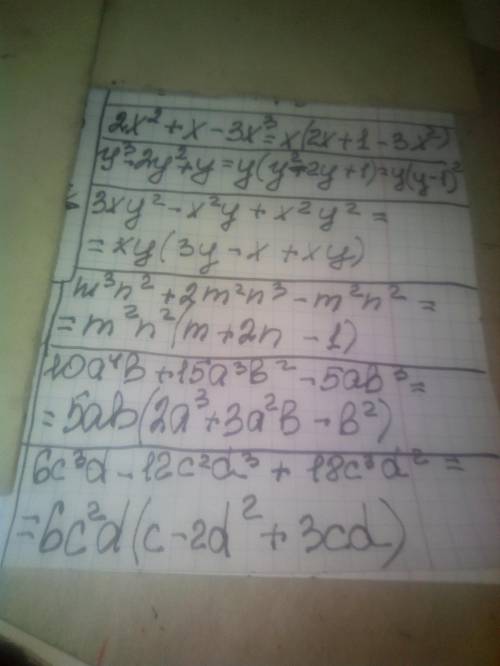 2x² + x - 3x³ = x(2x + 1 - 3x²)
y³ - 2y² + y = y(y² - 2y + 1) = y(y - 1)²
3xy² - x²y + x²y² =
= xy(3y - x + xy)
m³n² + 2m²n³ - m²n² =
= m²n²(m + 2n - 1)
10a⁴b + 15a³b² - 5ab³ =
= 5ab(2a³ + 3a²b - b²)
6c³d - 12c²d³ + 18c³d² =
= 6c²d(c - 2d² + 3cd)